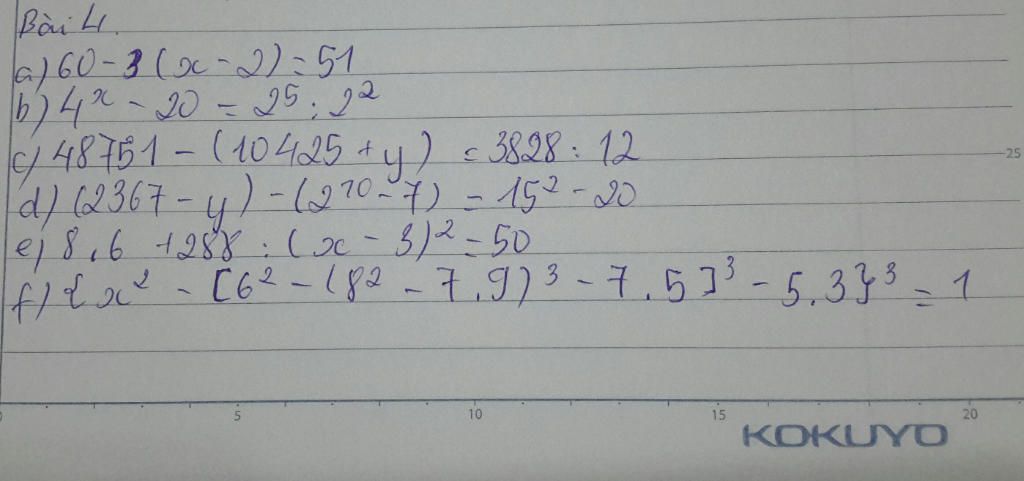 Bài 4.
a) 60 - 3 (x - 2) = 51
b) 4ˣ - 20 = 2⁵ : 2²
c) 48751 - (10425 + y) = 3828 : 12
d) (2367 - y) - (2¹⁰ - 7) = 15² - 20
e) 8.6 + 288 : (x - 3)² = 50
f) {x² - [6² - (8² - 7.9)³ - 7.5]³ - 5.3}³ = 1
25
5 10 15 20
KOKUYO